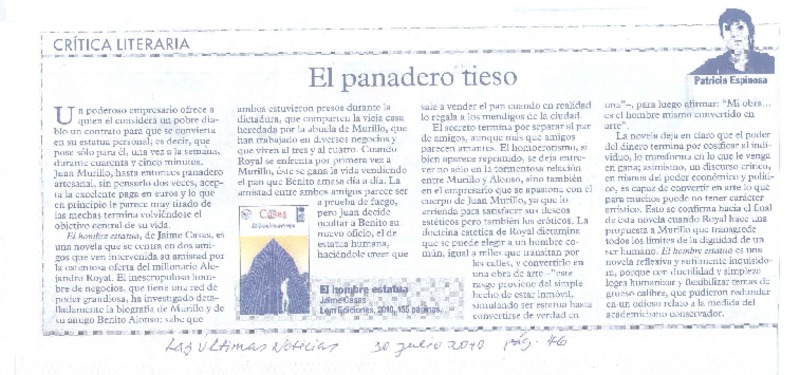 CRÍTICA LITERARIA
Patricia Espinosa
El panadero tieso
Un poderoso empresario ofrece a
quien él considera un pobre dia-
blo un contrato para que se convierta
en su estatua personal, es decir, que
pose sólo para él, una vez a la semana,
durante cuarenta y cinco minutos.
Juan Murillo, hasta entonces panadero
artesanal, sin pensarlo dos veces, acep-
ta la excelente paga en euros y lo que
en principio le parece muy tirado de
las mechas termina volviéndose el
objetivo central de su vida.
El hombre estatua, de Jaime Casas, es
una novela que se centra en dos ami-
gos que ven intervenida su amistad por
la ostentosa oferta del millonario Ale-
jandro Royal. El inescrupuloso hom-
bre de negocios, que tiene una red de
poder grandiosa, ha investigado deta-
lladamente la biografía de Murillo y de
su amigo Benito Alonso: sabe que
ambos estuvieron presos durante la
dictadura, que comparten la vieja casa
heredada por la abuela de Murillo, que
han trabajado en diversos negocios y
que viven al tres y al cuatro. Cuando
Royal se enfrenta por primera vez a
Murillo, éste se gana la vida vendiendo
el pan que Benito amasa día a día. La
amistad entre ambos amigos parece ser
a prueba de fuego,
pero Juan decide
ocultar a Benito su
nuevo oficio, el de
estatua humana,
haciéndole creer que
Casas
El hombre estatua
El hombre estatua
Jaime Casas
Lom Ediciones, 2010, 155 páginas.
sale a vender el pan cuando en realidad
lo regala a los mendigos de la ciudad.
El secreto termina por separar al par
de amigos, aunque más que amigos
parecen amantes. El homoerotismo, si
bien aparece reprimido, se deja entre-
ver no sólo en la tormentosa relación
entre Murillo y Alonso, sino también
en el empresario que se apasiona con el
cuerpo de Juan Murillo, ya que lo
arrienda para satisfacer sus deseos
estéticos pero también los eróticos. La
doctrina estética de Royal dictamina
que se puede elegir a un hombre co-
mún, igual a miles que transitan por
las calles, y convertirlo en
una obra de arte –"este
rasgo proviene del simple
hecho de estar inmóvil,
simulando ser estatua hasta
convertirse de verdad en
una"–, para luego afirmar: "Mi obra...
es el hombre mismo convertido en
arte".
La novela deja en claro que el poder
del dinero termina por cosificar al indi-
viduo, lo transforma en lo que le venga
en gana; asimismo, un discurso crítico,
en manos del poder económico y políti-
co, es capaz de convertir en arte lo que
para muchos puede no tener carácter
artístico. Esto se confirma hacia el final
de esta novela cuando Royal hace una
propuesta a Murillo que transgrede
todos los límites de la dignidad de un
ser humano. El hombre estatua es una
novela reflexiva y sutilmente inquisido-
ra, porque con ductilidad y simpleza
logra humanizar y flexibilizar temas de
grueso calibre, que pudieron redundar
en un odioso relato a la medida del
academicismo conservador.
Las Ultimas Noticias 30 julio 2010 pág. 46